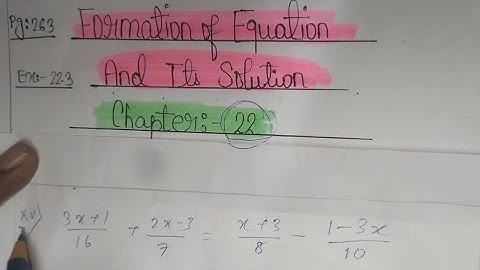 Pg:263
Formation of Equation
Ex:- 22.3
And Its Solution
Chapter:- 22
xv) 3x+1/16 + 2x-3/7 = x+3/8 - 1-3x/10